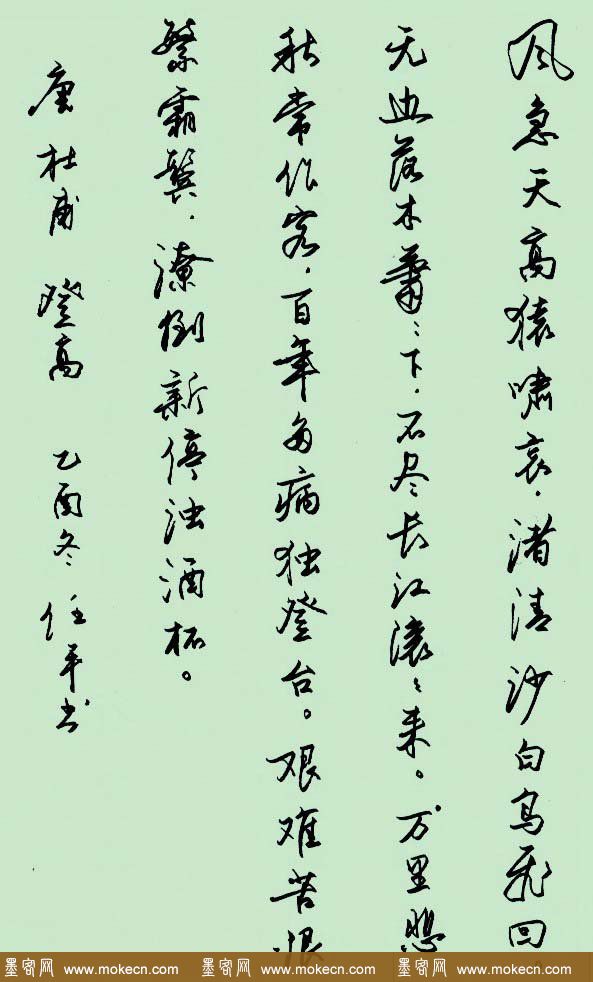 风急天高猿啸哀，渚清沙白鸟飞回。
无边落木萧〻下，不尽长江滚〻来。万里悲
秋常作客，百年多病独登台。艰难苦恨
繁霜鬓，潦倒新停浊酒杯。
唐 杜甫 登高 乙酉冬 任平书
墨客网 www.mokecn.com 墨客网 www.mokecn.com 墨客网 www.mokecn.com